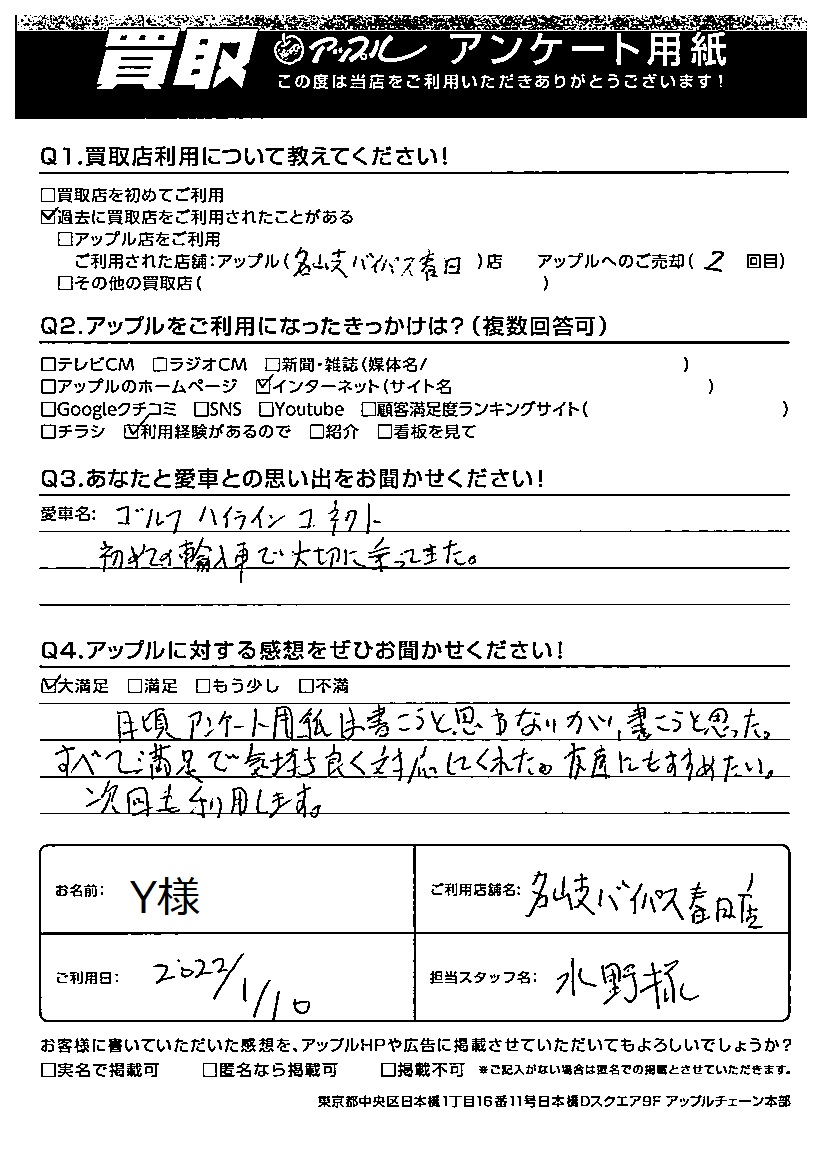 買取 アップル アンケート用紙
この度は当店をご利用いただきありがとうございます!
Q1.買取店利用について教えてください!
□買取店を初めてご利用
☑過去に買取店をご利用されたことがある
□アップル店をご利用
ご利用された店舗:アップル(名岐バイパス春日)店 アップルへのご売却(2 回目)
□その他の買取店( )
Q2.アップルをご利用になったきっかけは?(複数回答可)
□テレビCM □ラジオCM □新聞・雑誌(媒体名/ )
□アップルのホームページ ☑インターネット(サイト名 )
□Googleクチコミ □SNS □Youtube □顧客満足度ランキングサイト( )
□チラシ ☑利用経験があるので □紹介 □看板を見て
Q3.あなたと愛車との思い出をお聞かせください!
愛車名: ゴルフ ハイライン コネクト
初めての輸入車で大切に乗ってきた。
Q4.アップルに対する感想をぜひお聞かせください!
☑大満足 □満足 □もう少し □不満
日頃アンケート用紙は書こうと思わないが、書こうと思った。
すべて満足で気持ち良く対応してくれた。友達にもすすめたい。
次回も利用します。
お名前: Y様
ご利用店舗名: 名岐バイパス春日店
ご利用日: 2022/1/10
担当スタッフ名: 水野様
お客様に書いていただいた感想を、アップルHPや広告に掲載させていただいてもよろしいでしょうか?
□実名で掲載可 □匿名なら掲載可 □掲載不可 ※ご記入がない場合は匿名での掲載とさせていただきます。
東京都中央区日本橋1丁目16番11号日本橋Dスクエア9F アップルチェーン本部